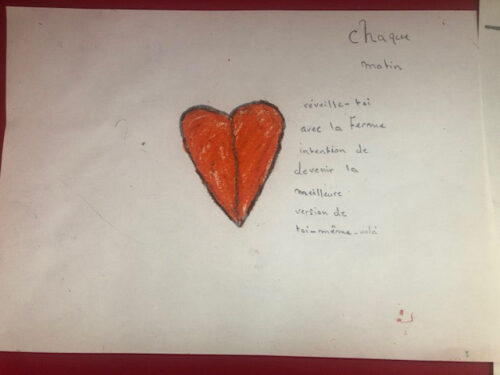 chaque
matin
réveille-toi
avec la Ferme
intention de
devenir la
meilleure
version de
toi-même-volà